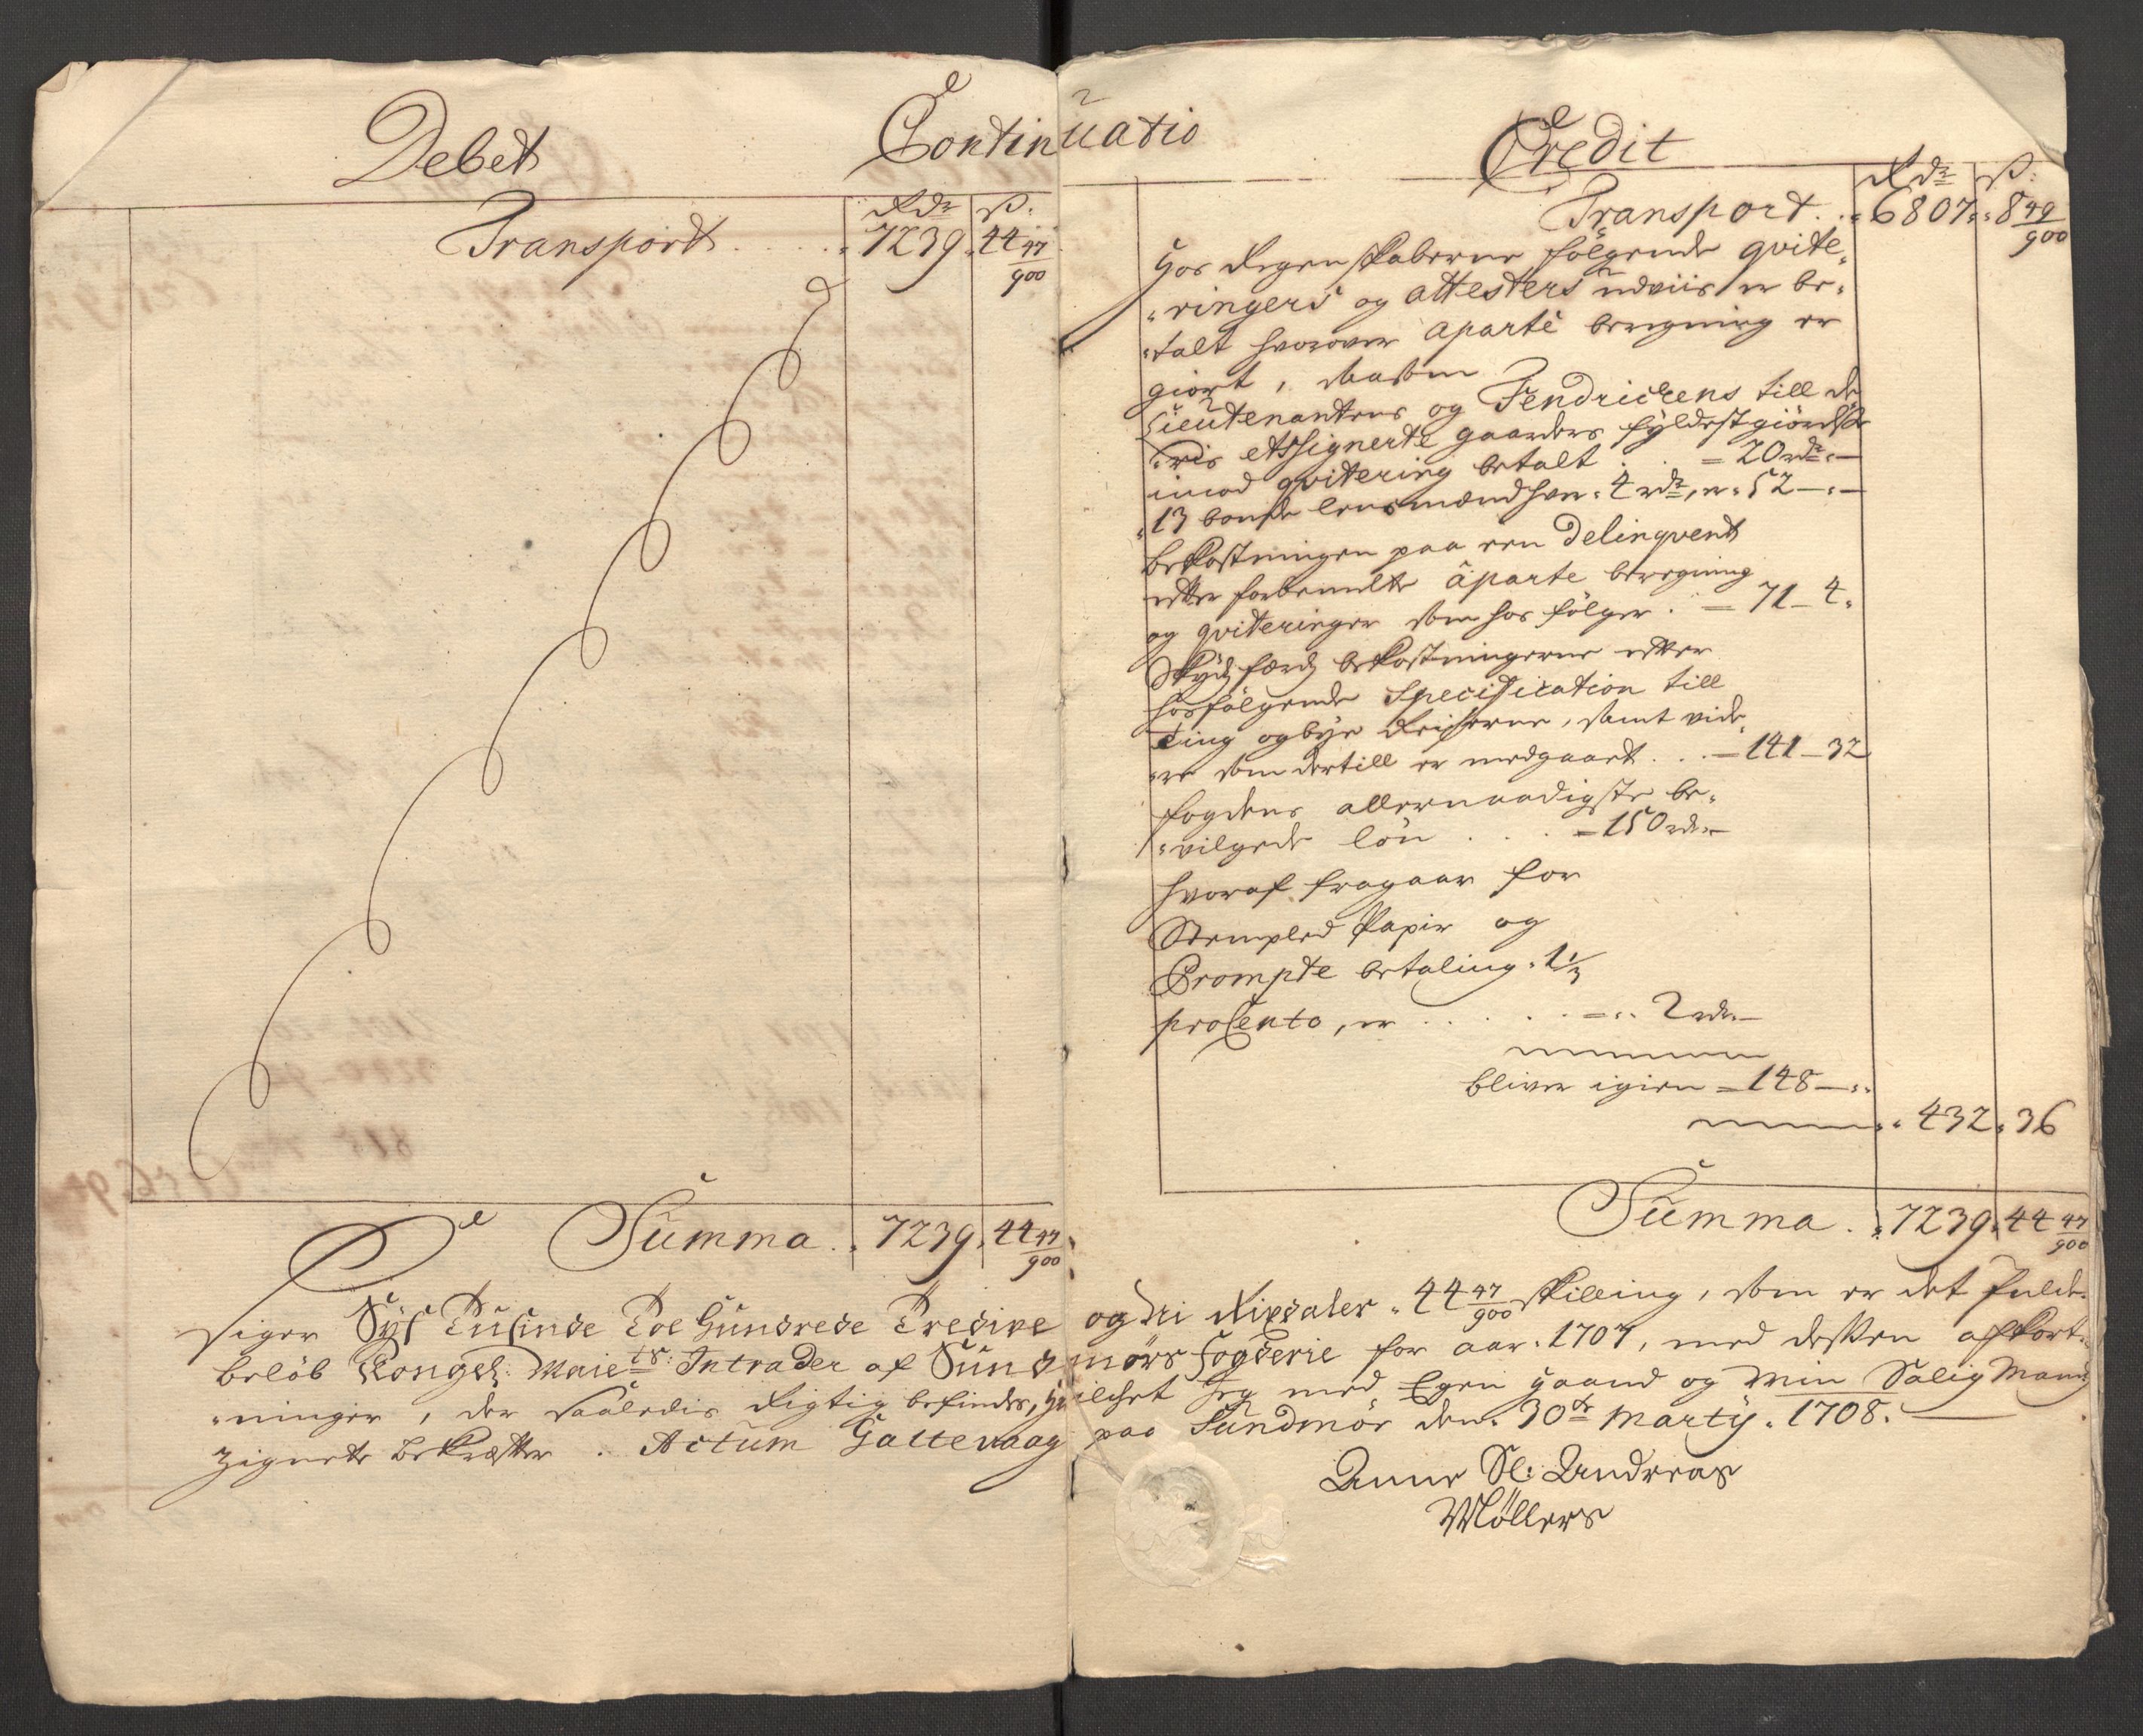 Debet
Continuatio
Credit
Rdr ß:
Transport .... 7239. 44 47/900
Rdr ß:
Transport .. 6807. 8 49/900
Hos Regenskaberne følgende qvite„
„ringers og attesters udviis er be„
„talt hvorover aparte beregning er
giort, Saasom
Lieutenantens og Fendrickens till de
„ris Assignerte gaarders fyldestgiørelse
imod qvitering betalt . . = 20 rdr „ —
„13 bonde lensmænd hver „ 4 rdr, er „ 52 — „ —
Bekostningen paa een Delinqvent
efter forbemelte aparte beregning
og qviteringer som hos følger . = 71 — 4„
Skydsferds bekostningerne efter
hosfølgende Specification till
Ting og bye Reiserne, samt vide„
„re som dertill er medgaaet . . — 141 — 32
fogdens allernaadigste be„
„vilgede løn . . . = 150 rdr —
hvoraf fragaar for
Stempled Papir og
Prompte betaling „ 1 1/3
proCento, er . . . . . = „ 2 rdr —
bliver igien = 148 — „
„ 432 „ 36
Summa . „ 7239 „ 44 47/900
Summa . „ 7239 „ 44 47/900
Siger Syf Tusinde Toe Hundrede Tredive og Ni Rixdaler „ 44 47/900 Skilling, som er det fulde
beløb Kongel: Maiets: Intrader af Sundmørs Fogderie for aar „ 1707, med desken afkort„
„ninger, der saaledis Rigtig befindes, hvilchet Jeg med Egen Haand og min Salig Mands
Zignete bekræfter . Actum Galtevaag paa Sundmør den 30te Marty „ 1708.
Anne Sl: Andreas
Møllers